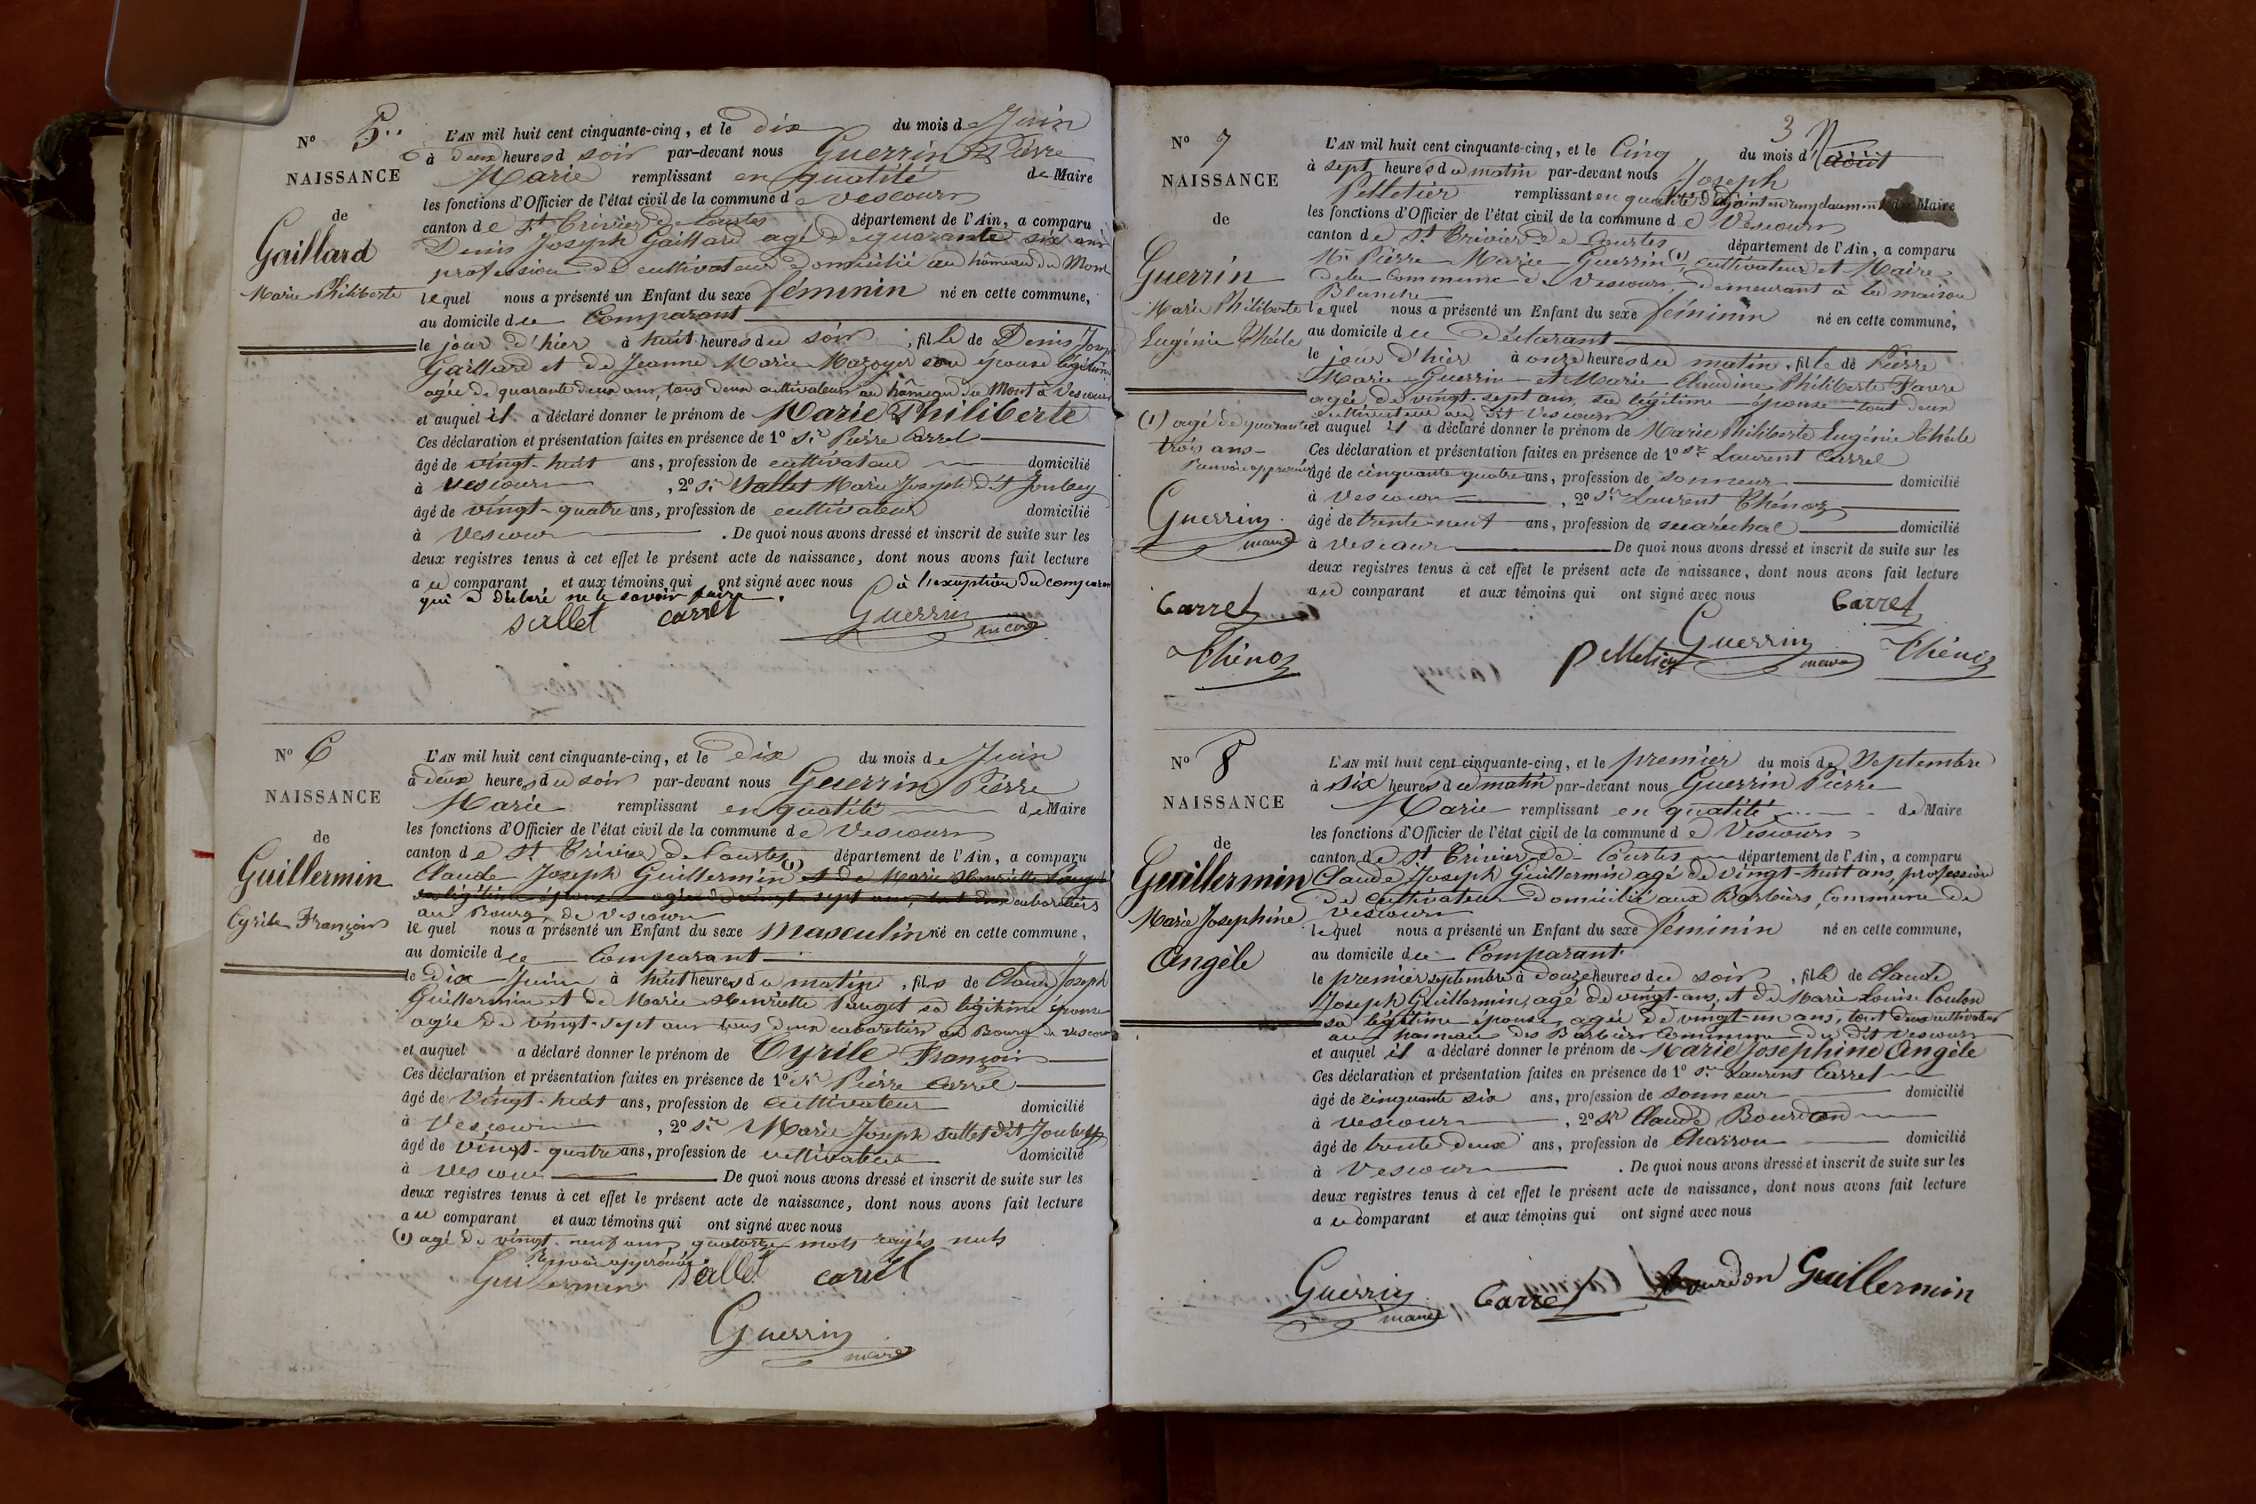 N° 5.. L'AN mil huit cent cinquante-cinq, et le dix du mois de Juin
à deux heures d soir par-devant nous Guerrin Pierre
NAISSANCE Marie remplissant en qualité de Maire
les fonctions d'Officier de l'état civil de la commune de Vescours
de canton de St Trivier de Courtes département de l'Ain, a comparu
Gaillard Denis Joseph Gaillard agé de quarante six ans
profession de cultivateur domicilié au hâmeau du Mont
Marie Philiberte lequel nous a présenté un Enfant du sexe féminin né en cette commune,
au domicile du Comparant
le jour d'hier à huit heures du soir, fille de Denis Joseph
Gaillard et de Jeanne Marie Mazoyer son épouse légitime
agée de quarante deux ans, tous deux cultivateurs au hâmeau du Mont à Vescours
et auquel il a déclaré donner le prénom de Marie Philiberte
Ces déclaration et présentation faites en présence de 1° Sr Pierre Carrel
âgé de vingt-huit ans, profession de cultivateur domicilié
à Vescours, 2° Sr Sallet Marie Joseph dit Joubey
âgé de vingt-quatre ans, profession de cultivateur domicilié
à Vescours. De quoi nous avons dressé et inscrit de suite sur les
deux registres tenus à cet effet le présent acte de naissance, dont nous avons fait lecture
au comparant et aux témoins qui ont signé avec nous à l'exception du comparant
qui a déclaré ne le savoir faire.
Sallet Carrel Guerrin
maire
N° 6 L'AN mil huit cent cinquante-cinq, et le Dix du mois de Juin
à deux heures du soir par-devant nous Guerrin Pierre
NAISSANCE Marie remplissant en qualité de Maire
les fonctions d'Officier de l'état civil de la commune de Vescours
de canton de St Trivier de Courtes (1) département de l'Ain, a comparu
Guillermin Claude Joseph Guillermin et de Marie Henriette
sa légitime épouse agée de vingt sept ans, tout deux cabaretiers
au Bourg de Vescours
Cyrile François lequel nous a présenté un Enfant du sexe masculin né en cette commune,
au domicile du Comparant
le dix Juin à huit heures du matin, fils de Claude Joseph
Guillermin et de Marie Henriette sa légitime épouse
agée de vingt-sept ans tous deux cabaretiers au Bourg de Vescours
et auquel a déclaré donner le prénom de Cyrile François
Ces déclaration et présentation faites en présence de 1° Sr Pierre Carrel
âgé de vingt-huit ans, profession de cultivateur domicilié
à Vescours, 2° Sr Marie Joseph Sallet dit Joubey
âgé de vingt-quatre ans, profession de cultivateur domicilié
à Vescours De quoi nous avons dressé et inscrit de suite sur les
deux registres tenus à cet effet le présent acte de naissance, dont nous avons fait lecture
au comparant et aux témoins qui ont signé avec nous
(1) agé de vingt-neuf ans, quatorze mots rayés nuls
Renvoi approuvé
Guillermin Sallet Carrel
Guerrin
maire
3
N° 7 L'AN mil huit cent cinquante-cinq, et le Cinq du mois d'Août
à sept heures du matin par-devant nous Joseph
NAISSANCE Pelletier remplissant en qualité d'adjoint en remplacement du Maire
de les fonctions d'Officier de l'état civil de la commune de Vescours
canton de St Trivier de Courtes département de l'Ain, a comparu
Guerrin Mr Pierre Marie Guerrin (1) cultivateur et Maire
de la Commune de Vescours, demeurant à la maison
Blanche
Marie Philiberte lequel nous a présenté un Enfant du sexe féminin né en cette commune,
Eugénie au domicile du déclarant
le jour d'hier à onze heures du matin, fille de Pierre
Marie Guerrin et Marie Claudine Philiberte Favre
agée de vingt-sept ans sa légitime épouse tout deux
cultivateur au dit Vescours
(1) agé de quarante et auquel il a déclaré donner le prénom de Marie Philiberte Eugénie
trois ans Ces déclaration et présentation faites en présence de 1° Sr Laurent Carrel
renvoi approuvé âgé de cinquante quatre ans, profession de sonneur domicilié
à Vescours, 2° Sr Laurent Thénoz
Guerrin âgé de trente-neuf ans, profession de maréchal domicilié
maire à Vescours De quoi nous avons dressé et inscrit de suite sur les
deux registres tenus à cet effet le présent acte de naissance, dont nous avons fait lecture
au comparant et aux témoins qui ont signé avec nous
Carrel Carrel
Thénoz Pelletier Guerrin maire Thénoz
N° 8 L'AN mil huit cent cinquante-cinq, et le premier du mois de Septembre
à six heures du matin par-devant nous Guerrin Pierre
NAISSANCE Marie remplissant en qualité de Maire
les fonctions d'Officier de l'état civil de la commune de Vescours
de canton de St Trivier de Courtes département de l'Ain, a comparu
Guillermin Claude Joseph Guillermin agé de vingt-huit ans, profession
de cultivateur domicilié aux Barbiers, Commune de
Marie Josephine Vescours
lequel nous a présenté un Enfant du sexe féminin né en cette commune,
Angèle au domicile du Comparant
le premier septembre à douze heures du soir, fille de Claude
Joseph Guillermin, agé de vingt-ans, et de Marie Louise Coulon
sa légitime épouse, agée de vingt-un ans, tout deux cultivateur
au hameau des Barbiers Commune du dit Vescours
et auquel il a déclaré donner le prénom de Marie Josephine Angèle
Ces déclaration et présentation faites en présence de 1° Sr Laurent Carrel
âgé de cinquante six ans, profession de sonneur domicilié
à Vescours, 2° Sr Claude Bourdon
âgé de trente deux ans, profession de Charron domicilié
à Vescours. De quoi nous avons dressé et inscrit de suite sur les
deux registres tenus à cet effet le présent acte de naissance, dont nous avons fait lecture
au comparant et aux témoins qui ont signé avec nous
Guerrin maire Carrel Bourdon Guillermin